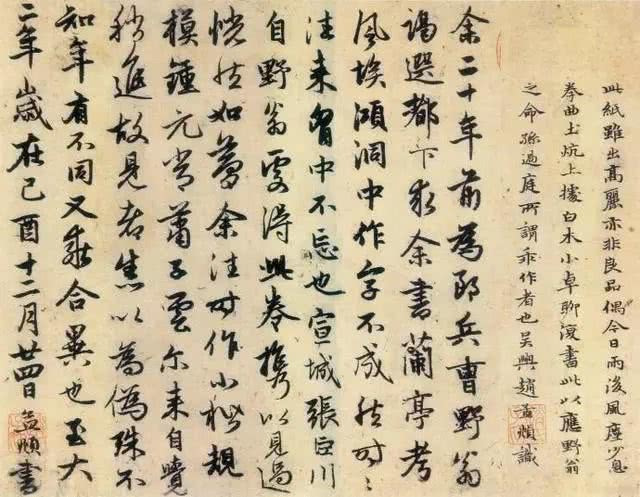 此紙雖出高麗亦非良品偶今日雨後風塵少息
拳曲土炕上據白木小卓聊復書此以應野翁
之命孫過庭所謂乖作者也吳興趙孟頫識
余二十年前為郎兵曹野翁
謁選都下求余書蘭亭考
風埃澒洞中作字不成然時々
往來胷中不忘也宣城張巨川
自野翁處得此卷携以見過
恍然如夢余往時作小楷規
模鍾元常蕭子雲尔来自覺
稍進故見者悉以為偽殊不
知年有不同又乖合異也至大
二年歲在己酉十二月廿四日孟頫書